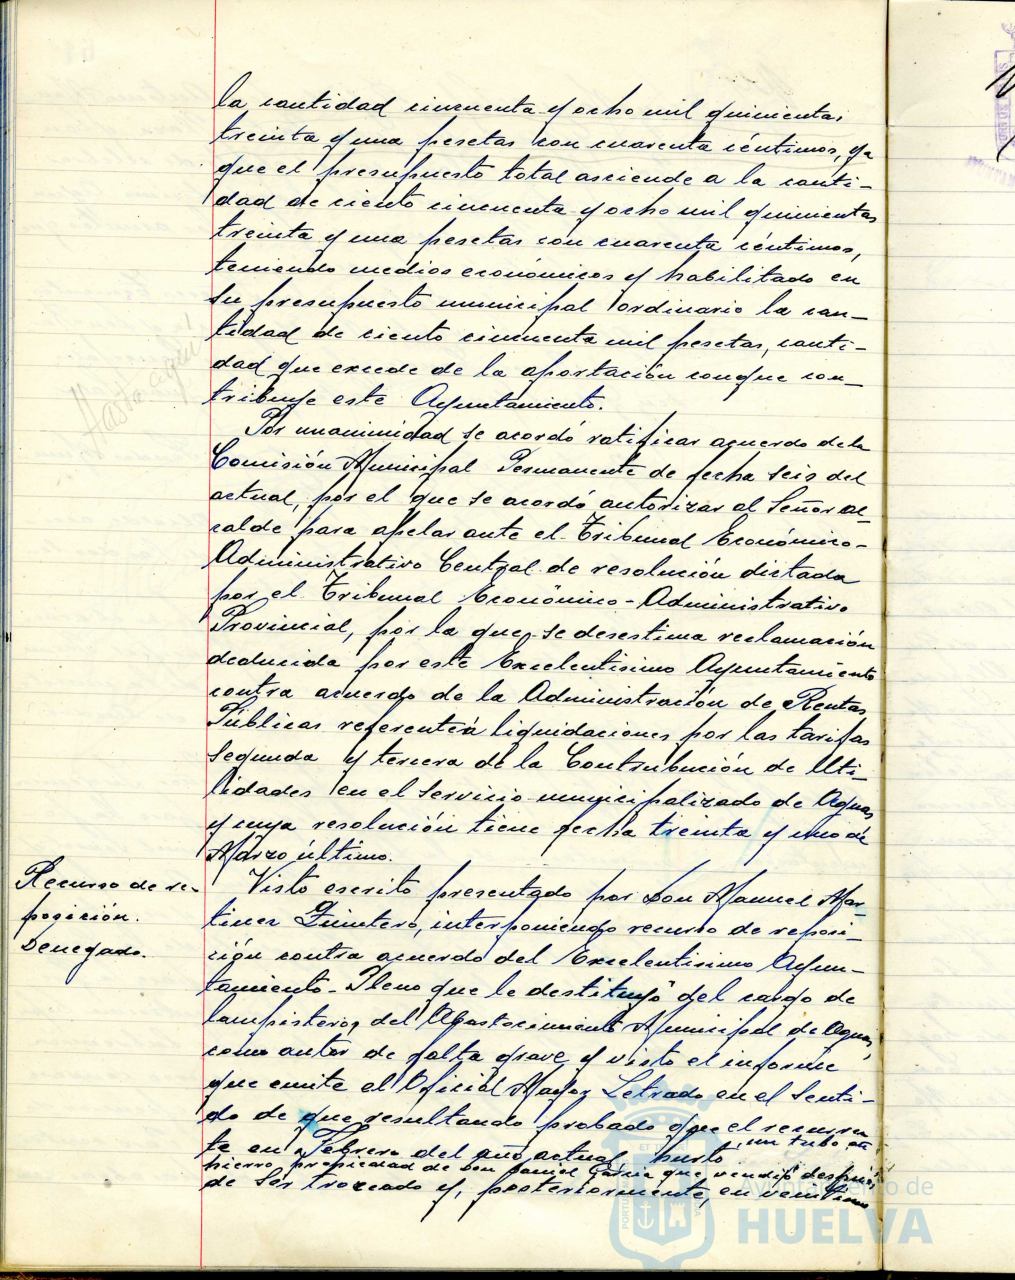 la cantidad cincuenta y ocho mil quinientas
treinta y una pesetas con cuarenta céntimos, ya
que el presupuesto total asciende a la canti-
dad de ciento cincuenta y ocho mil quinientas
treinta y una pesetas con cuarenta céntimos,
teniendo medios económicos y habilitado en
su presupuesto municipal ordinario la can-
tidad de ciento cincuenta mil pesetas, canti-
dad que excede de la aportación conque con-
tribuye este Ayuntamiento.
Hasta aquí
Por unanimidad se acordó ratificar acuerdo de la
Comisión Municipal Permanente de fecha seis del
actual, por el que se acordó autorizar al Señor Al-
calde para apelar ante el Tribunal Económico-
Administrativo Central de resolución dictada
por el Tribunal Económico-Administrativo
Provincial, por la que se desestima reclamación
deducida por este Excelentísimo Ayuntamiento
contra acuerdo de la Administración de Rentas
Públicas referente a liquidaciones por las tarifas
segunda y tercera de la Contribución de Uti-
lidades en el servicio municipalizado de Aguas
y cuya resolución tiene fecha treinta y uno de
Marzo último.
Recurso de re-
posición.
Denegado.
Visto escrito presentado por Don Manuel Mar-
tinez Quintero, interponiendo recurso de reposi-
ción contra acuerdo del Excelentísimo Ayun-
tamiento-Pleno que le destituyó del cargo de
lampistero del Abastecimiento Municipal de Aguas,
como autor de falta grave y visto el informe
que emite el Oficial Mayor Letrado en el senti-
do de que resultando probado que el recurren
te en Febrero del año actual hurtó un tubo de
hierro propiedad de Don Daniel que vendió después
de ser troceado y, posteriormente, en
Ayuntamiento de
HUELVA